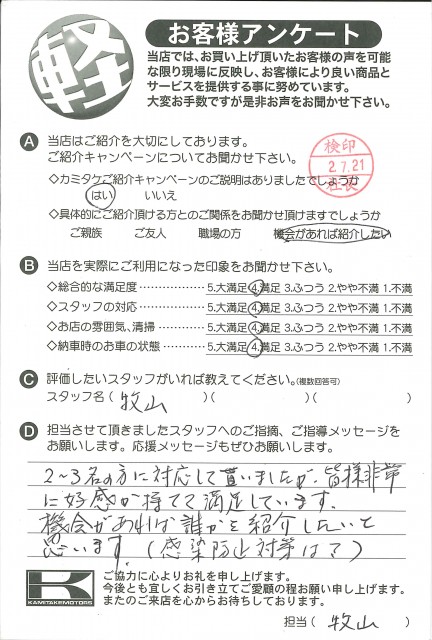 軽
お客様アンケート
当店では、お買い上げ頂いたお客様の声を可能
な限り現場に反映し、お客様により良い商品と
サービスを提供する事に努めています。
大変お手数ですが是非お声をお聞かせ下さい。
A 当店はご紹介を大切にしております。
ご紹介キャンペーンについてお聞かせ下さい。
検印
2.7.21
社長
◇カミタケご紹介キャンペーンのご説明はありましたでしょうか
はい いいえ
◇具体的にご紹介頂ける方とのご関係をお聞かせ頂けますでしょうか
ご親族 ご友人 職場の方 機会があれば紹介したい
B 当店を実際にご利用になった印象をお聞かせ下さい。
◇総合的な満足度……………5.大満足 4.満足 3.ふつう 2.やや不満 1.不満
◇スタッフの対応……………5.大満足 4.満足 3.ふつう 2.やや不満 1.不満
◇お店の雰囲気、清掃………5.大満足 4.満足 3.ふつう 2.やや不満 1.不満
◇納車時のお車の状態………5.大満足 4.満足 3.ふつう 2.やや不満 1.不満
C 評価したいスタッフがいれば教えてください。(複数回答可)
スタッフ名( 牧山 )( )( )
D 担当させて頂きましたスタッフへのご指摘、ご指導メッセージを
お願いします。応援メッセージもぜひお願いします。
2~3名の方に対応して貰いましたが、皆様非常
に好感が持てて満足しています。
機会があれば誰かを紹介したいと
思います。(感染防止対策は?)
ご協力に心よりお礼を申し上げます。
今後とも宜しくお引き立てご愛顧の程お願い申し上げます。
またのご来店を心からお待ちしております。
KAMITAKEMOTORS
担当( 牧山 )